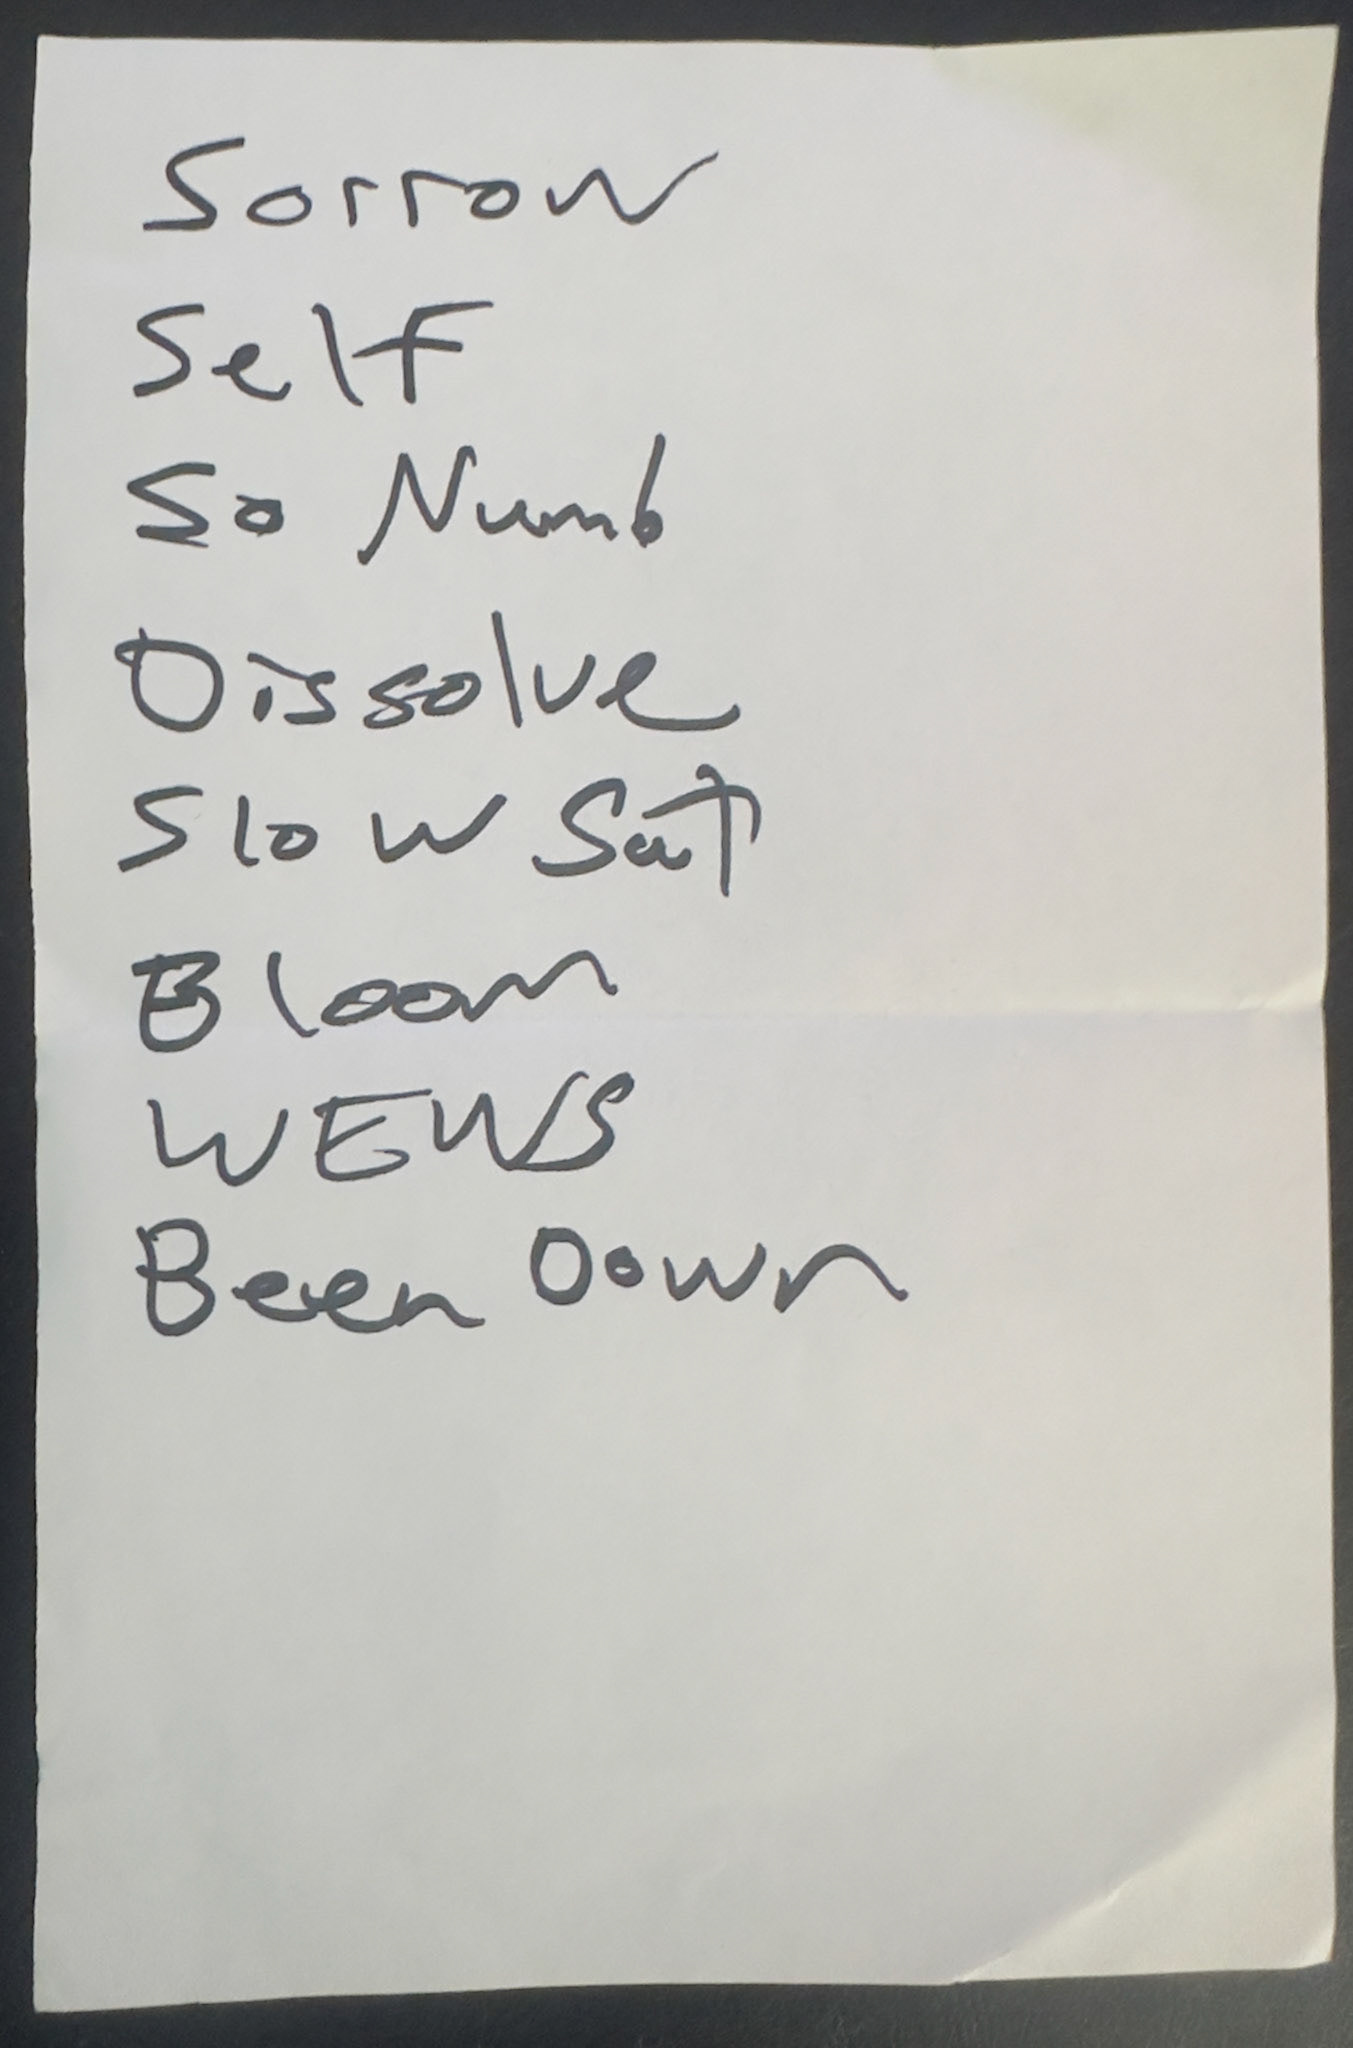 Sorrow
Self
So Numb
Dissolve
Slow Sat
Bloom
WEWS
Been Down